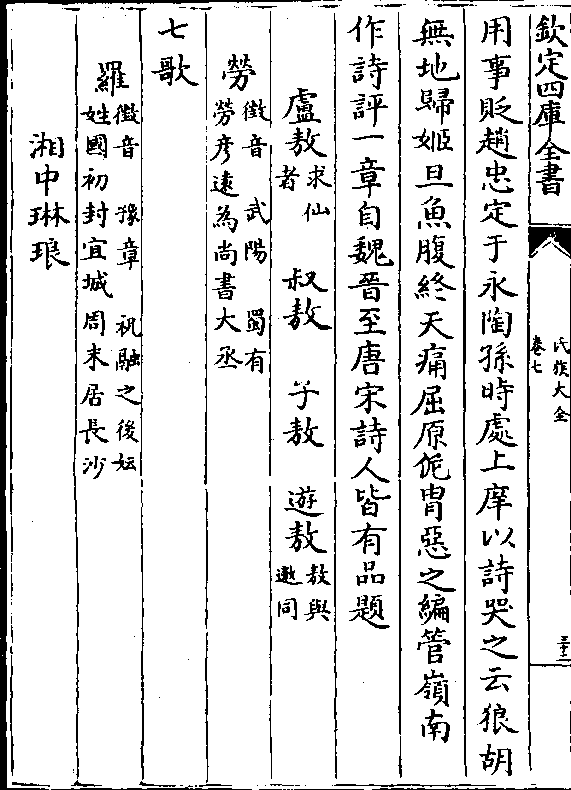 欽定四庫全書
氏族大全
卷七
三十二
用事貶趙忠定于永陶孫時處上庠以詩哭之云狼胡
無地歸姬旦魚腹終天痛屈原侂胄惡之編管嶺南
作詩評一章自魏晉至唐宋詩人皆有品題
盧敖求仙者 叔敖 子敖 遊敖敖與邀同
勞徵音 武陽 蜀有勞彦遠為尚書大丞
七歌
羅徵音 豫章 祝融之後妘姓國初封宜城周末居長沙
湘中琳琅